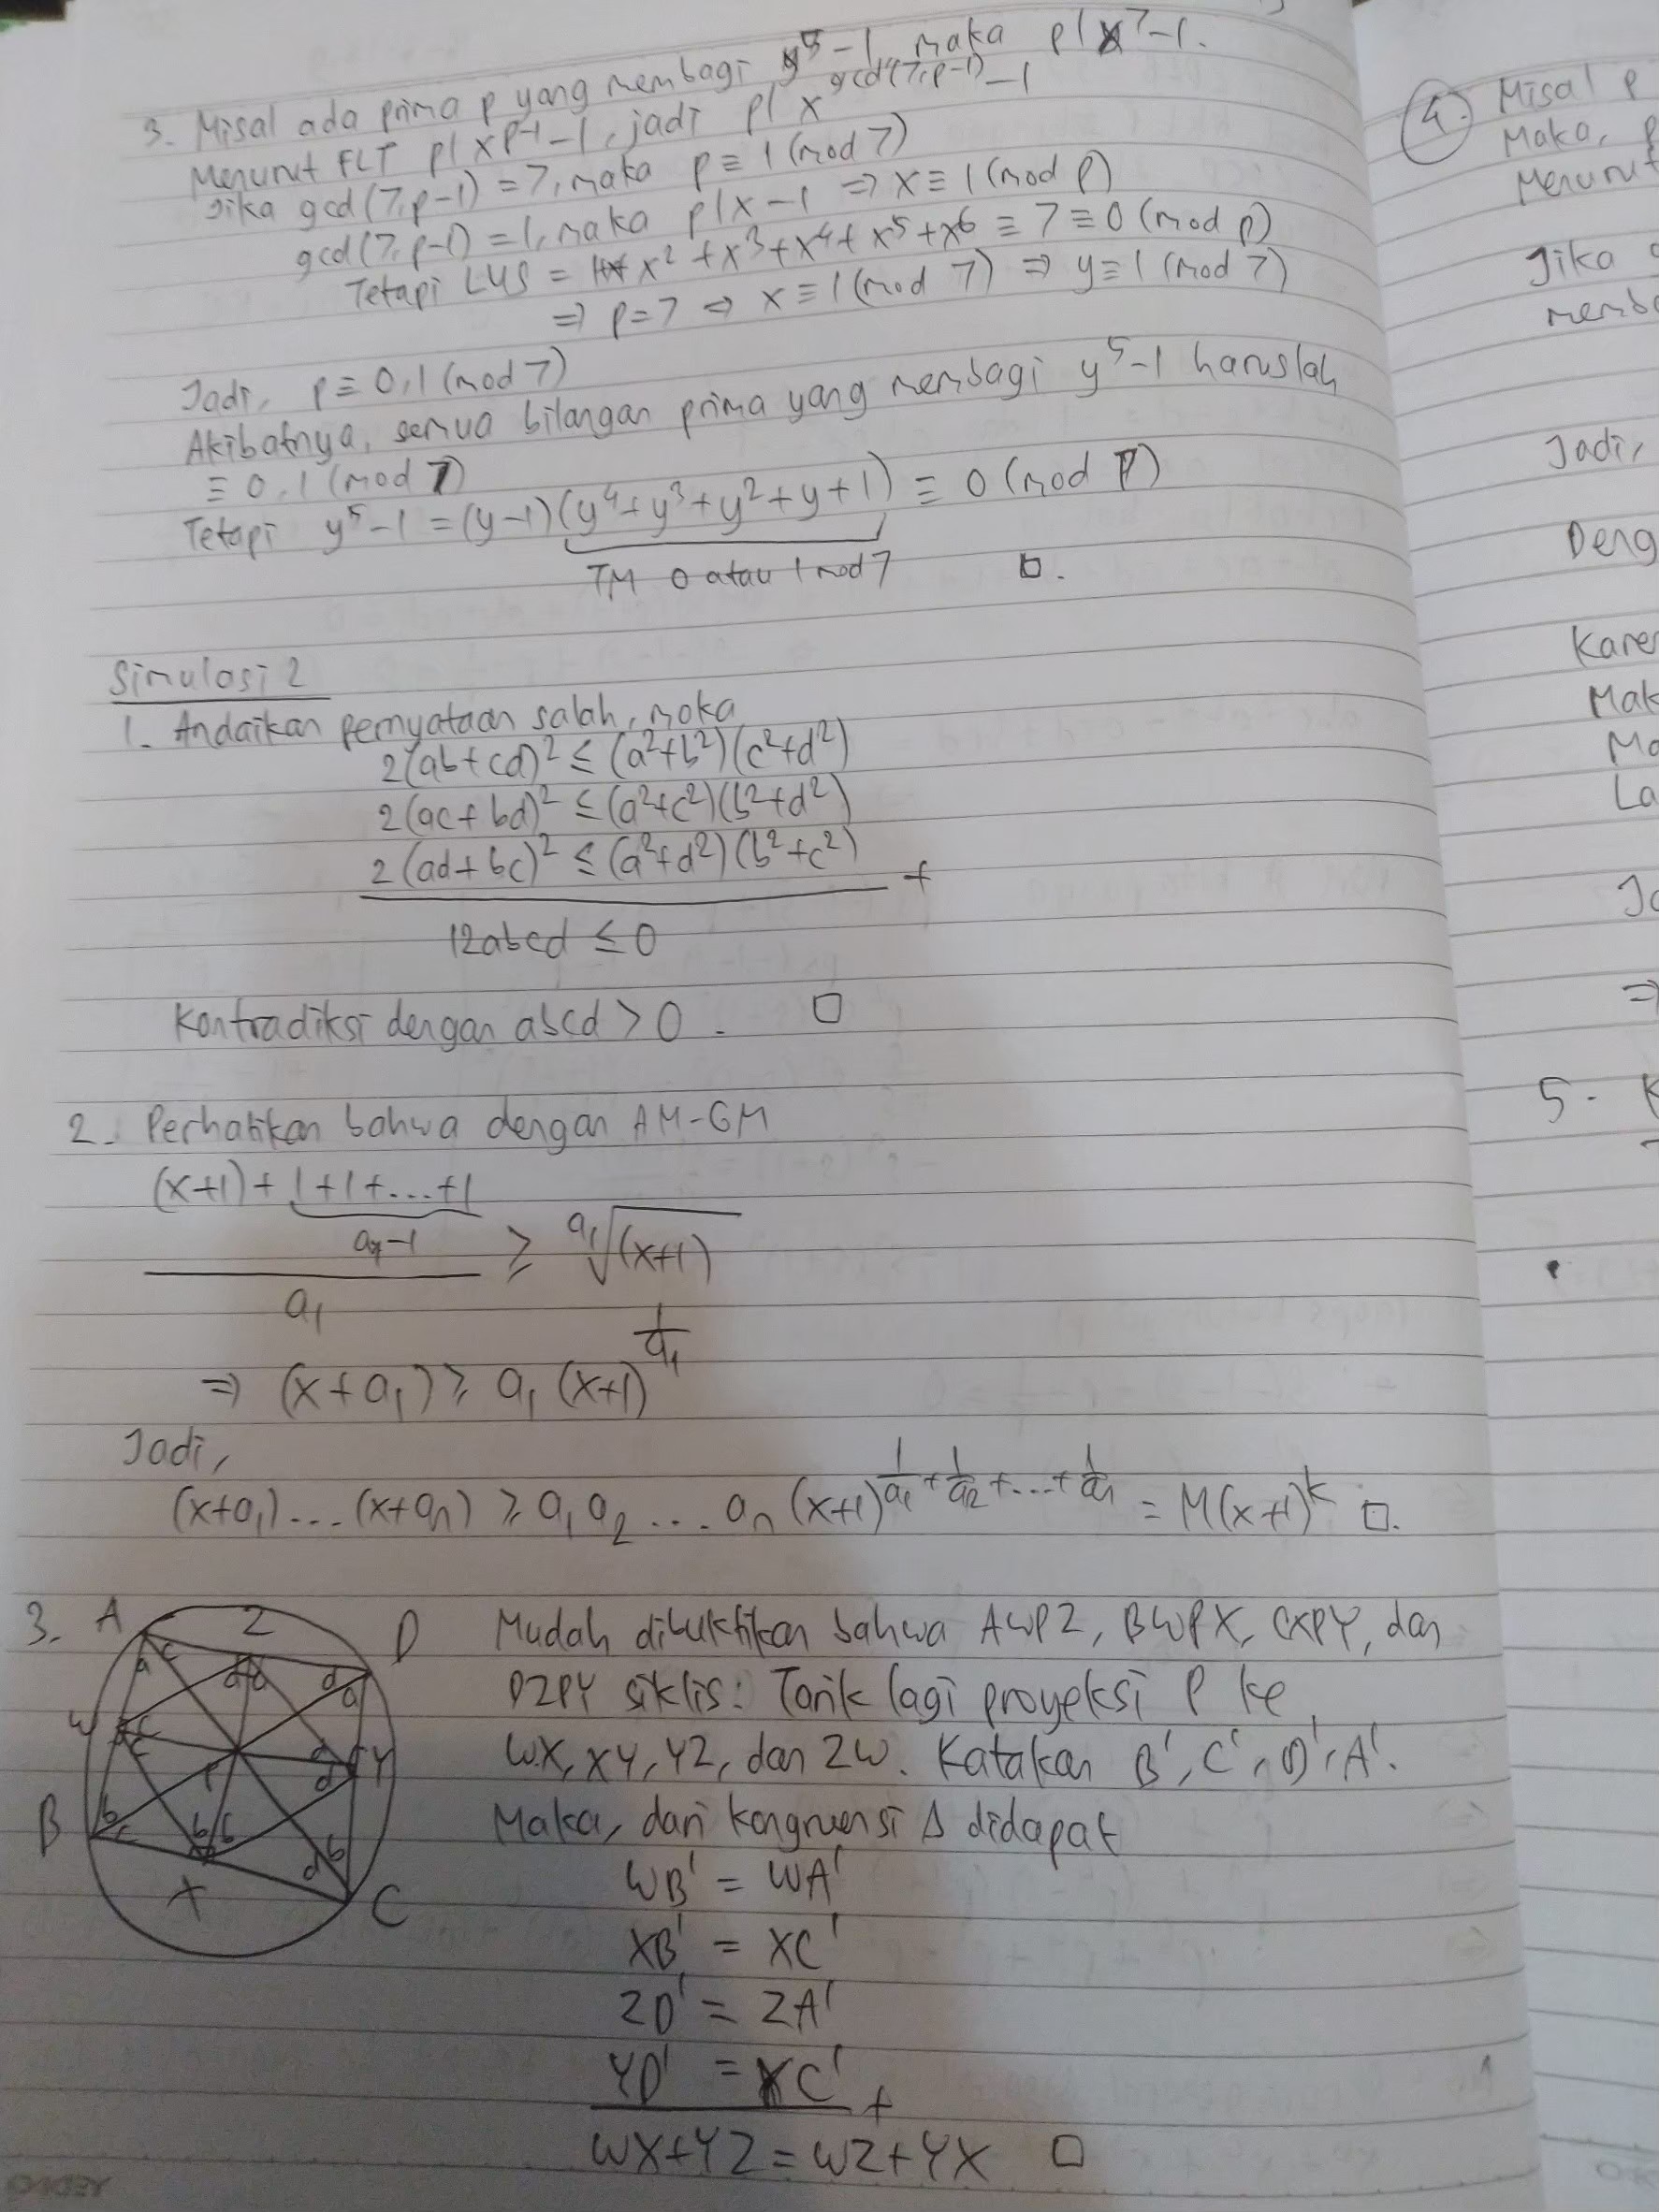 3. Misal ada prima p yang membagi y⁵-1, maka p|x⁷-1.
Menurut FLT p|x^{p-1}-1, jadi p|x^{gcd(7,p-1)}-1
Jika gcd(7,p-1)=7, maka p≡1(mod 7)
gcd(7,p-1)=1, maka p|x-1 ⇒ x≡1(mod p)
Tetapi LHS = x²+x³+x⁴+x⁵+x⁶≡7≡0(mod p)
⇒ p=7 ⇒ x≡1(mod 7) ⇒ y≡1(mod 7)
Jadi, p≡0,1(mod 7)
Akibatnya, semua bilangan prima yang membagi y⁵-1 haruslah
≡0,1(mod 7)
Tetapi y⁵-1=(y-1)(y⁴+y³+y²+y+1)≡0(mod p)
TM 0 atau 1 mod 7 □.
Simulasi 2
1. Andaikan pernyataan salah, maka
2(ab+cd)²≤(a²+b²)(c²+d²)
2(ac+bd)²≤(a²+c²)(b²+d²)
2(ad+bc)²≤(a²+d²)(b²+c²)
+
12abcd≤0
Kontradiksi dengan abcd>0. □
2. Perhatikan bahwa dengan AM-GM
(x+1)+1+1+...+1
a₁-1
≥ ᵃ¹√(x+1)
a₁
⇒ (x+a₁)≥a₁(x+1)^{1/a₁}
Jadi,
(x+a₁)...(x+aₙ)≥a₁a₂...aₙ(x+1)^{1/a₁+1/a₂+...+1/aₙ}=M(x+1)^k □.
3. A Z D
W Y
P
B
X C
a c d a
a d d a
c c d d
b c b b d b
Mudah dibuktikan bahwa AWPZ, BWPX, CXPY, dan
DZPY siklis. Tarik lagi proyeksi P ke
WX, XY, YZ, dan ZW. Katakan B', C', D', A'.
Maka, dari kongruensi Δ didapat
WB'=WA'
XB'=XC'
ZD'=ZA'
YD'=YC'
+
WX+YZ=WZ+YX □
4. Misal p
Maka, p
Menurut
Jika
Jadi,
Deng
Karen
Mak
Ma
La
Ja
⇒
5.